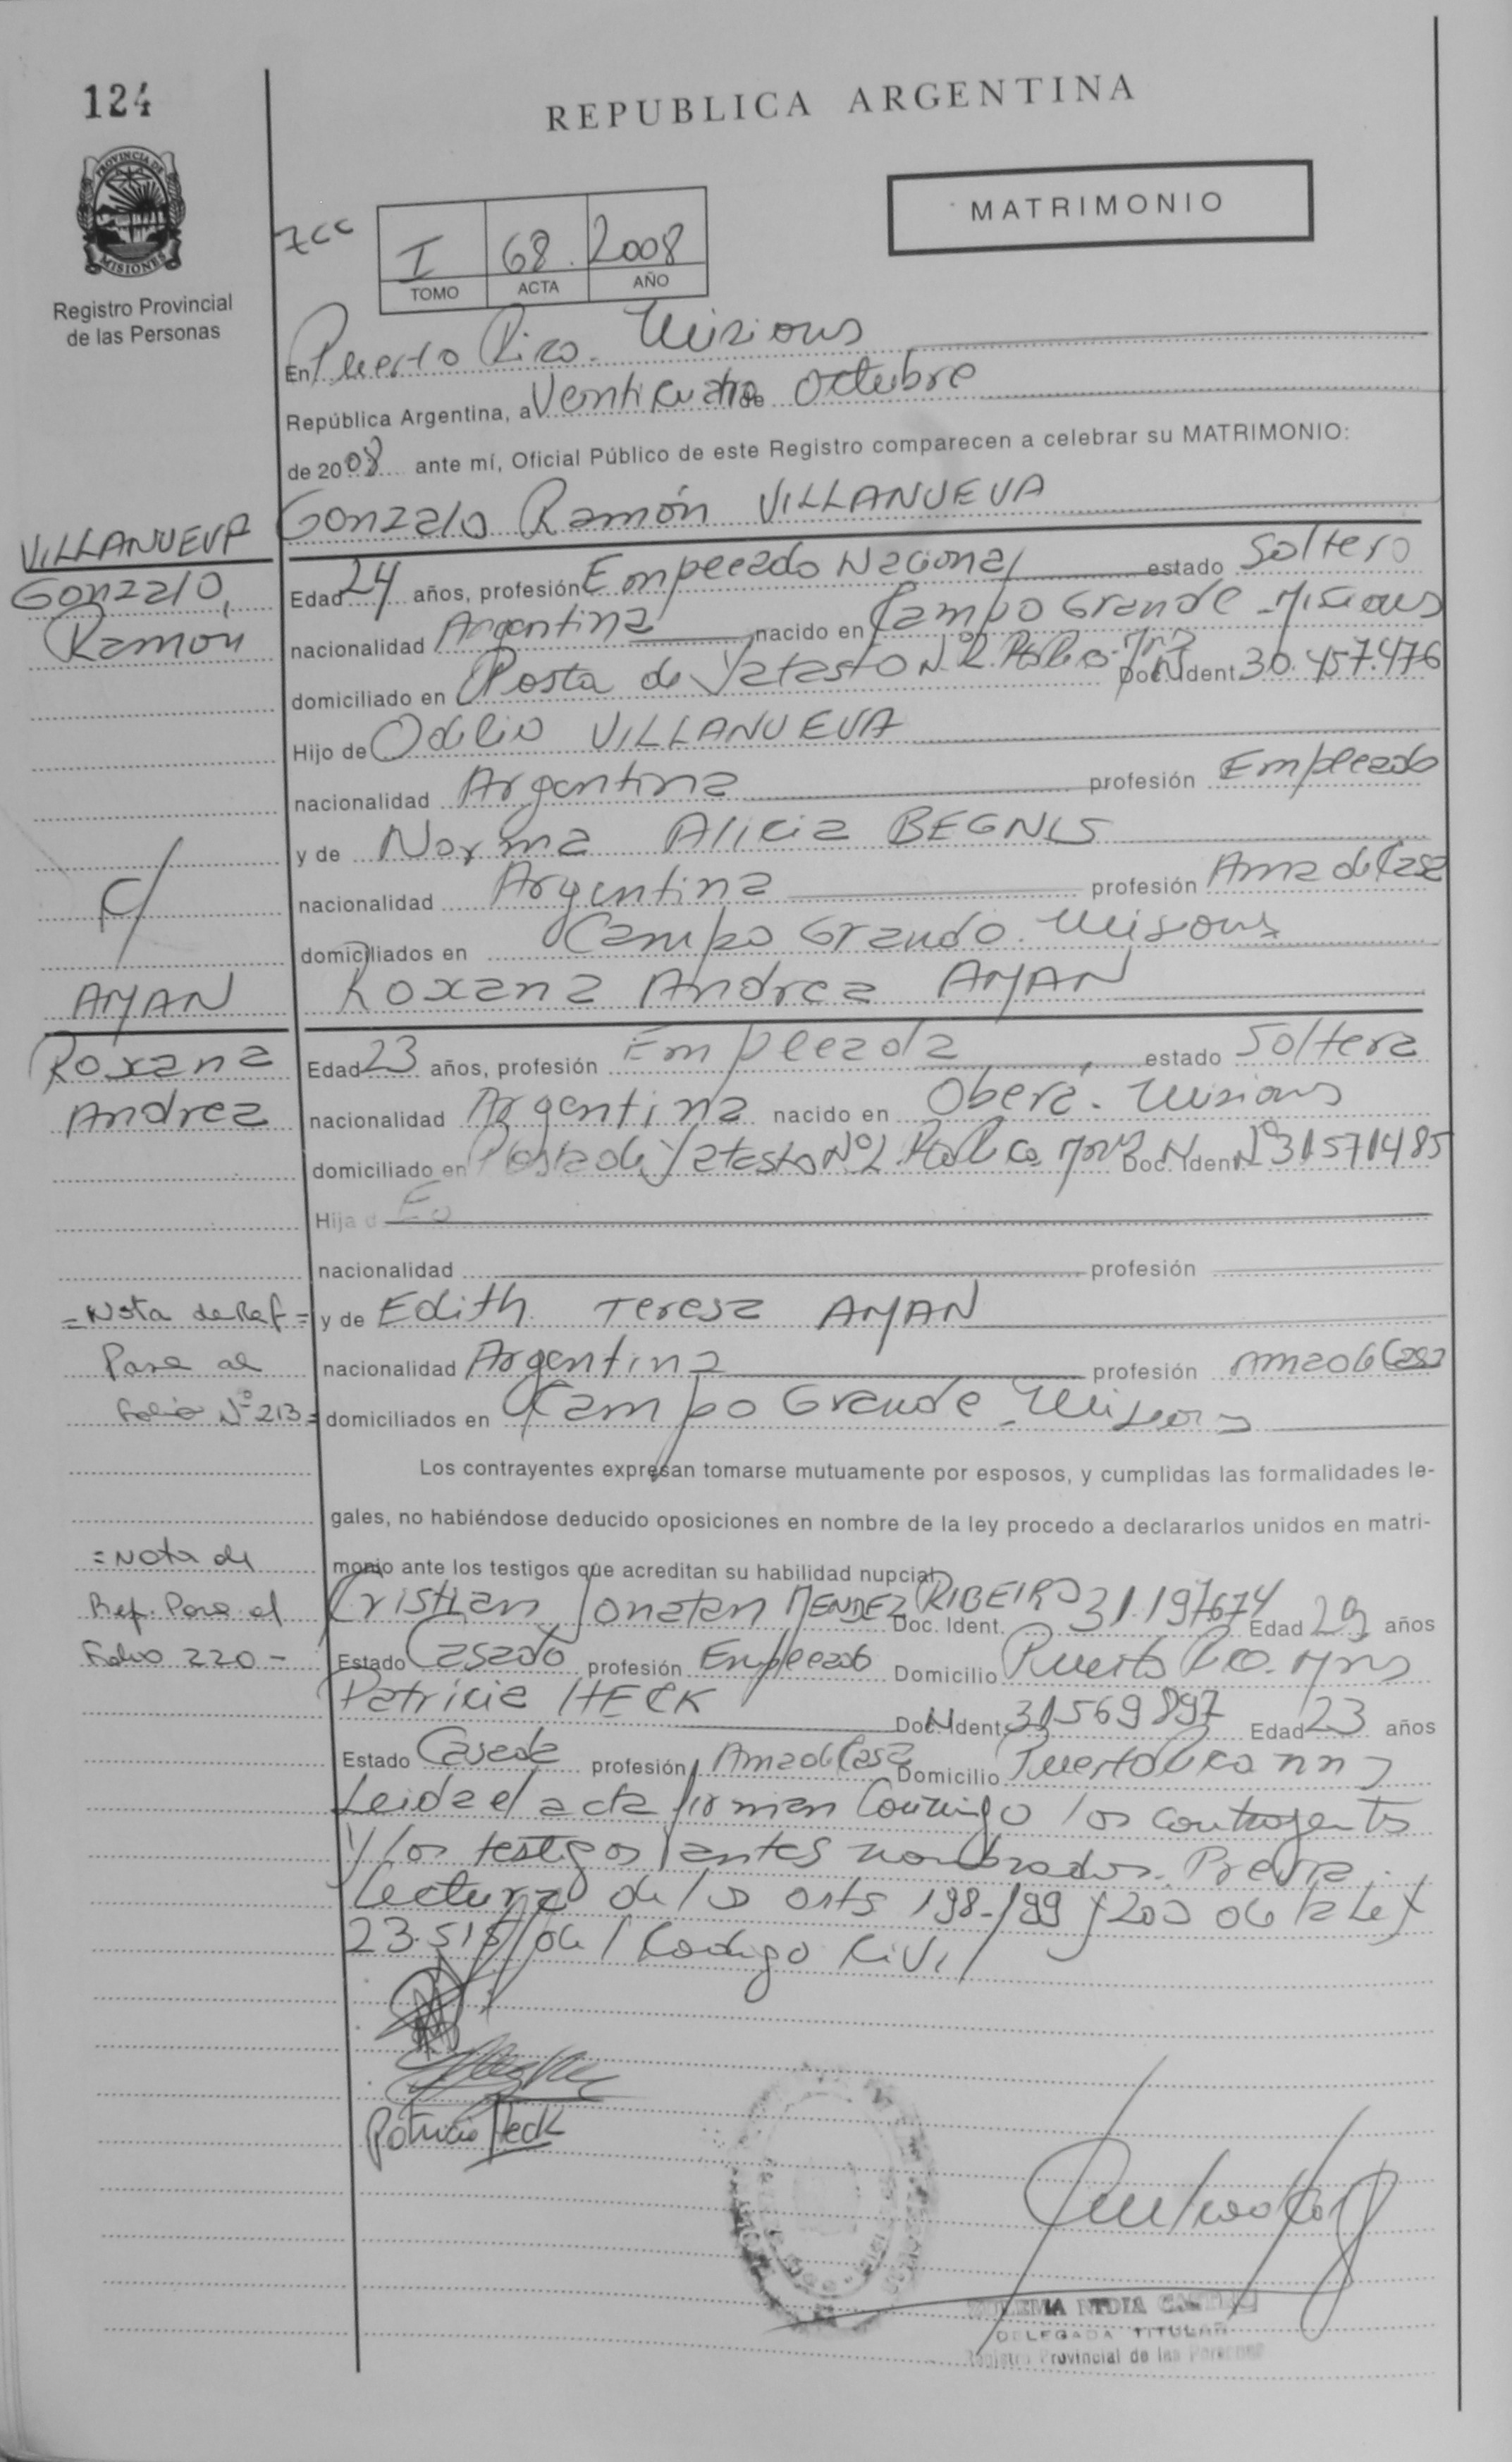 124
REPUBLICA ARGENTINA
PROVINCIA DE
MISIONES
Registro Provincial
de las Personas
MATRIMONIO
7cc
I 68 2008
TOMO ACTA AÑO
En Puerto Rico - Misiones
República Argentina, a Venticuatro de octubre
de 2008 ante mí, Oficial Público de este Registro comparecen a celebrar su MATRIMONIO:
Gonzalo Ramón VILLANUEVA
VILLANUEVA
Gonzalo,
Ramón
Edad 24 años, profesión Empleado Nacional estado Soltero
nacionalidad Argentina nacido en Campo Grande - Misiones
domiciliado en Posta de Yatasto N.º 2. Pto Rico - Mns Doc. N. Ident. 30.457.476
Hijo de Odilio VILLANUEVA
nacionalidad Argentina profesión Empleado
y de Norma Alicia BEGNIS
nacionalidad Argentina profesión Ama de Casa
domiciliados en Campo Grande. Misiones
c/
AMAN
Roxana
Andrea
Roxana Andrea AMAN
Edad 23 años, profesión Empleada estado Soltera
nacionalidad Argentina nacido en Oberá - Misiones
domiciliado en Posta de Yatasto Nº 2. Pto Rico Mns Doc. N. Ident. Nº 31571485
Hija d
nacionalidad profesión
y de Edith Teresa AMAN
nacionalidad Argentina profesión Ama de Casa
domiciliados en Campo Grande - Misiones
= Nota de Ref =
Pase al
Folio Nº 213 =
Los contrayentes expresan tomarse mutuamente por esposos, y cumplidas las formalidades le-
gales, no habiéndose deducido oposiciones en nombre de la ley procedo a declararlos unidos en matri-
monio ante los testigos que acreditan su habilidad nupcial
= Nota de
Ref. Pase al
Folio 220 -
Cristian Jonatan MENDEZ RIBEIRO Doc. Ident. 31.197674 Edad 29 años
Estado Casado profesión Empleado Domicilio Puerto Rico. Mns
Patricia HECK Doc. N. Ident. 31569897 Edad 23 años
Estado Casada profesión Ama de Casa Domicilio Puerto Rico Mns
Leida el acta firman conmigo los contrayentes
y los testigos antes nombrados. Previa
lectura de los arts 198-199 y 200 de la Ley
23.515 del Codigo Civil
Patricia Heck
DELEGADA TITULAR
Registro Provincial de las Personas